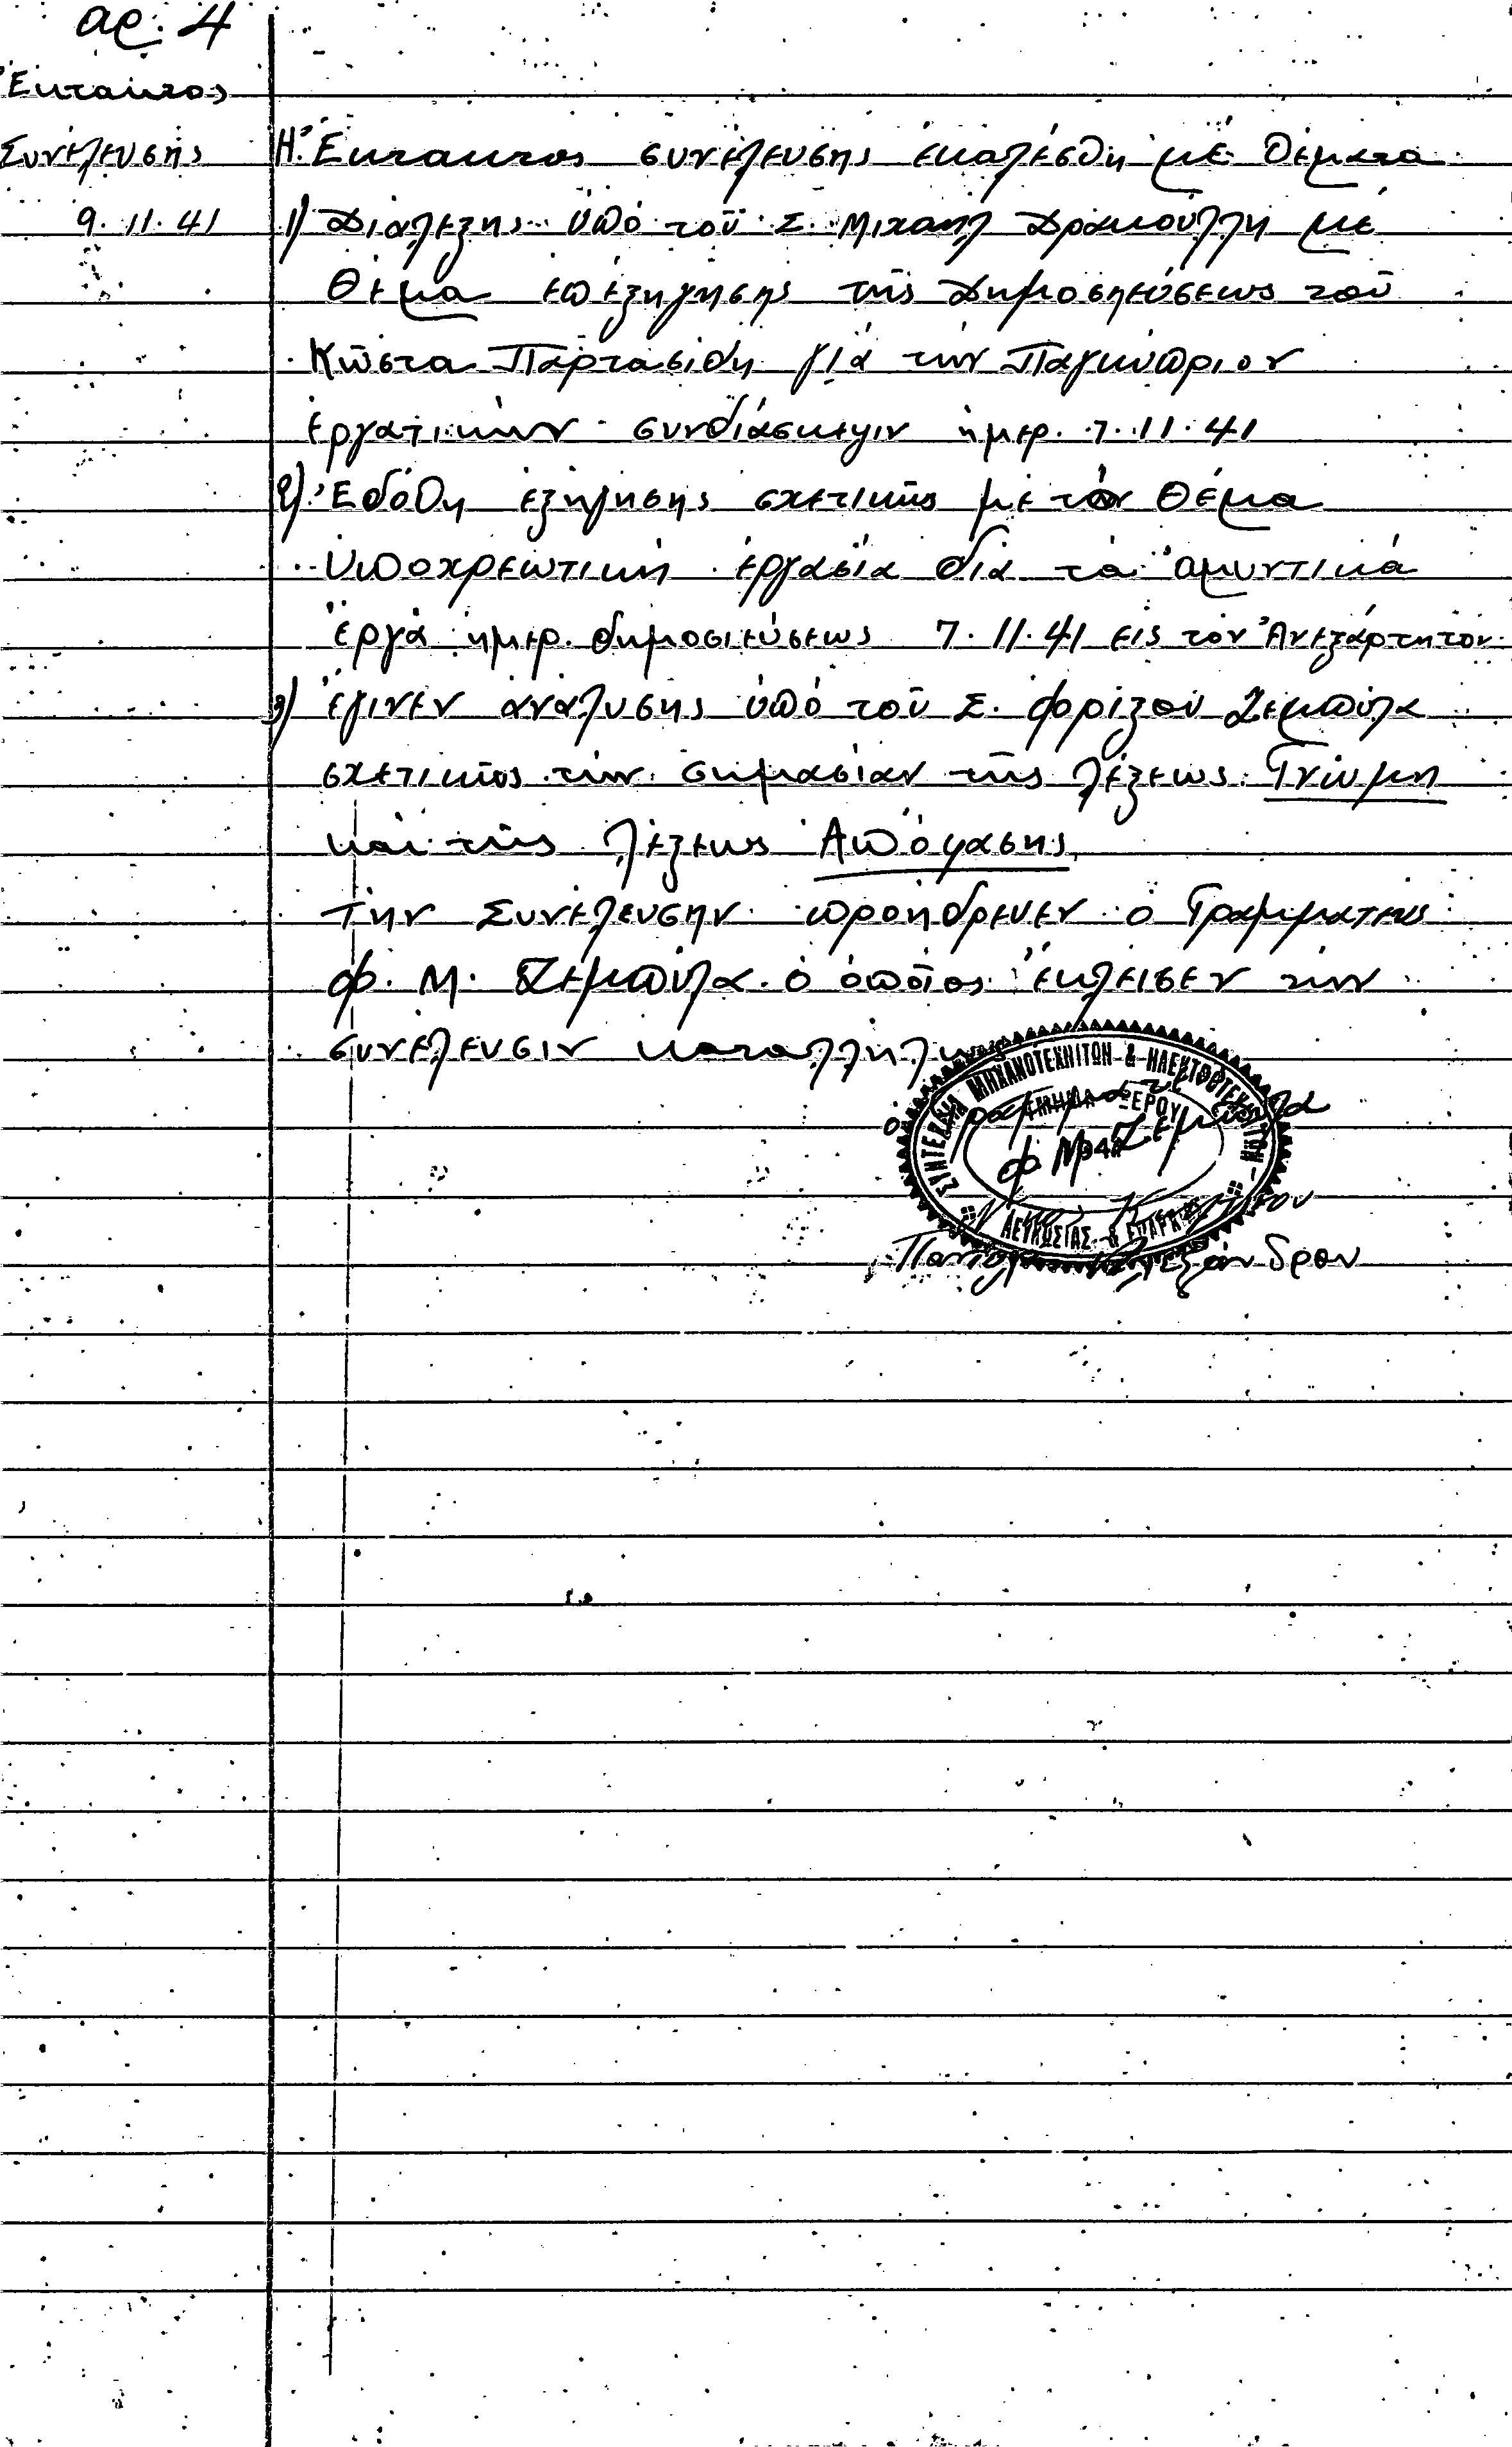 αρ. 4
Έκτακτος
Συνέλευσης
9.11.41
Η Έκτακτος συνέλευσης έκαλέσθη μέ θέματα
1) Διάλεξης ύπό τοῦ Σ. Μιχαηλ Δρακούλλη μέ
Θέμα επέξηγησης τῆς Δημοσηεύσεως τοῦ
Κῶστα Παρτασίδη γιά τήν Παγκύπριον
έργατικήν συνδιάσκεψιν ήμερ. 7.11.41
2) Έδόθη έξήγησης σχετικῶς με τόν Θέμα
Υποχρεωτική έργασία διά τά άμυντικά
Έργα ήμερ. δημοσιεύσεως 7.11.41 εις τόν Άνεξάρτητον
3) έγινεν άνάλυσης ύπό τοῦ Σ. Φρίξου Ζεμπύλα
σχετικῶς τήν σημασίαν τῆς λέξεως Γνώμη
καί τῆς λέξεως Απόφασης
Την Συνέλευσην προήδρευεν ό Γραμματεύς
Φ. Μ. Ζεμπύλα ό όποῖος έκλεισεν τήν
συνέλευσιν
ΣΥΝΤΕΧΝΙΑ ΜΗΧΑΝΟΤΕΧΝΙΤΩΝ & ΗΛΕΚΤΡΟΤΕΧΝΙΤΩΝ
ΤΜΗΜΑ ΞΕΡΟΥ
Φ. Μ. Ζεμπύλα
ΛΕΥΚΩΣΙΑΣ & ΕΠΑΡΧΙΑΣ
Αλεξάνδρου